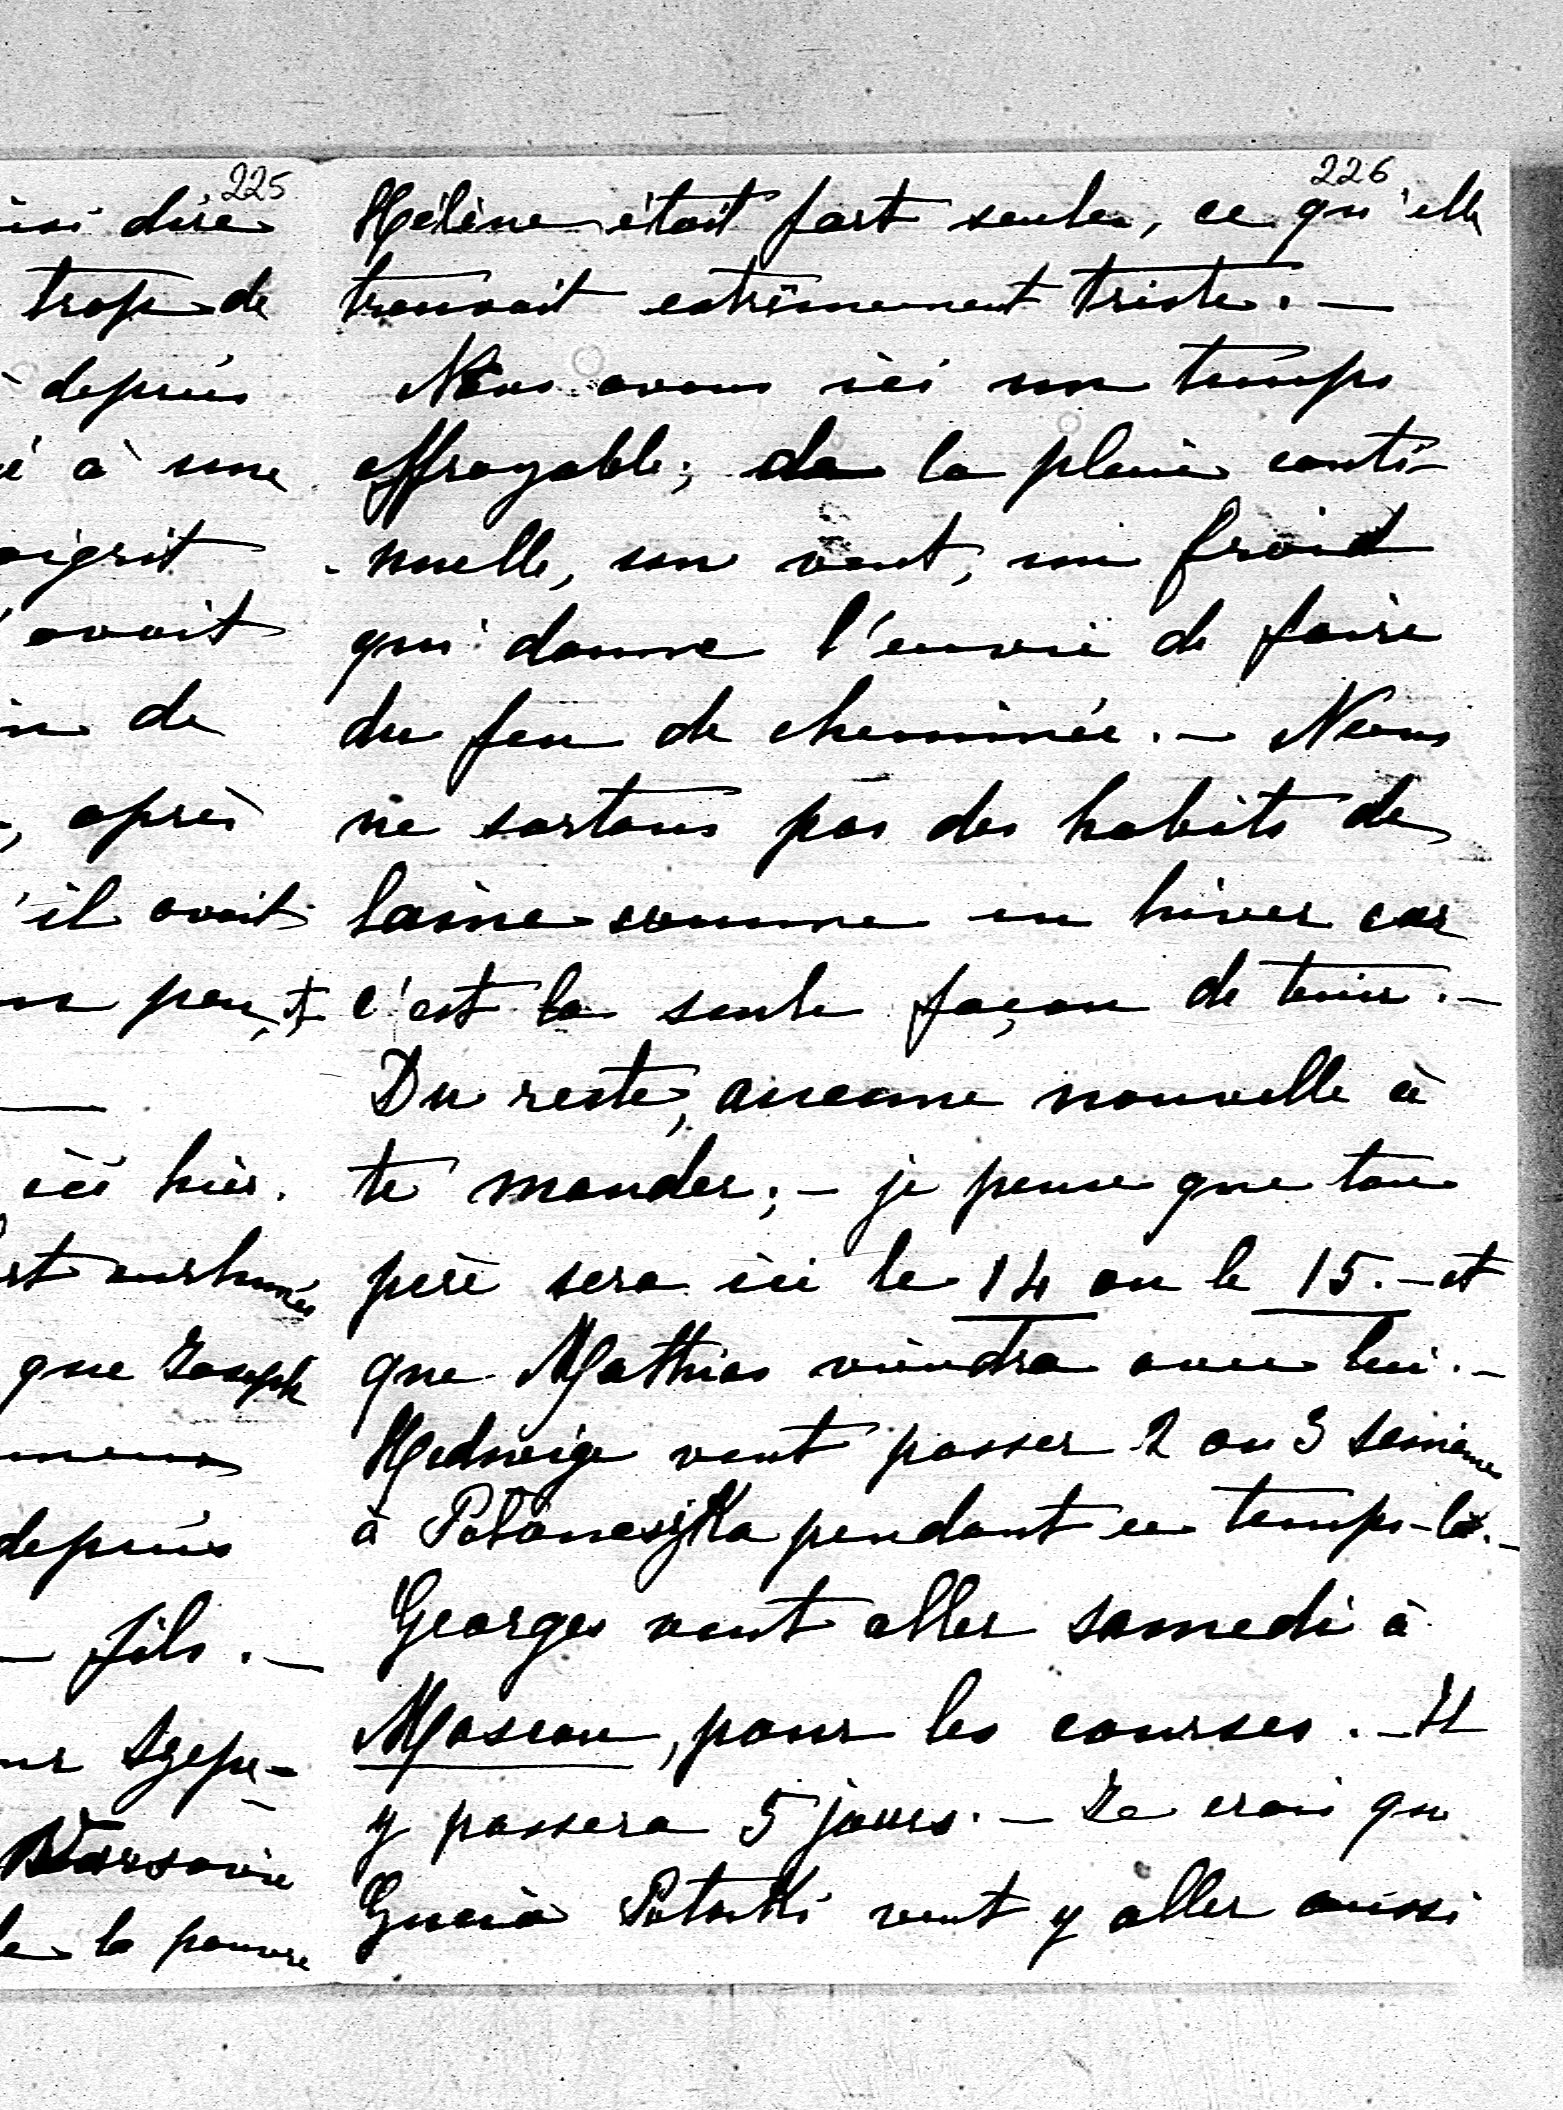 225
isi dire
trop de
depuis
é à une
aigrit
avait
in de
, après
'il avait
un peu, et
ici hier.
est enrhumés
que Joseph
depuis
- fils. -
ur Szepe-
Varsovie
la pauvre
226
Hélène était fort seule, ce qu'elle
trouvait extrêmement triste. -
Nous avons ici un temps
effroyable; de la pluie conti-
nuelle, un vent, un froid
qui donne l'envie de faire
du feu de cheminée. - Nous
ne sortons pas des habits de
laine comme en hiver car
c'est la seule façon de tenir. -
Du reste, aucune nouvelle à
te mander; - je pense que ton
père sera ici le 14 ou le 15. - et
que Mathias viendra avec lui. -
Hedwige veut passer 2 ou 3 semaines
à pendant ce temps-là. -
Georges veut aller samedi à
Moscou, pour les courses. - Il
y passera 5 jours. - Je crois que
Gucio Potocki veut y aller aussi